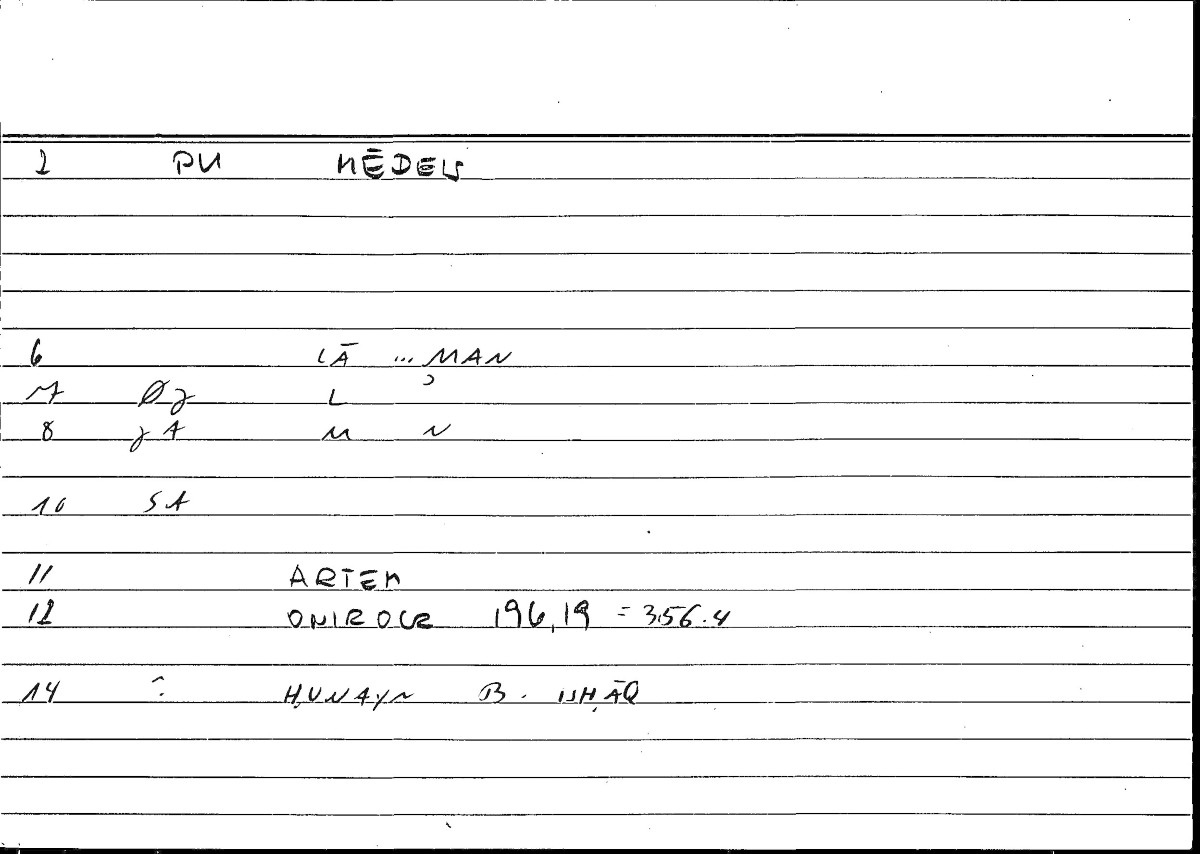 2 PN MĒDEIS
6 LĀ ... MAN
7 Øʒ L ʾ
8 ʒA M N
10 SA
11 ARTEM
12 ONIROCR 196,19 = 356.4
14 ? ḤUNAYN B. ISḤĀQ